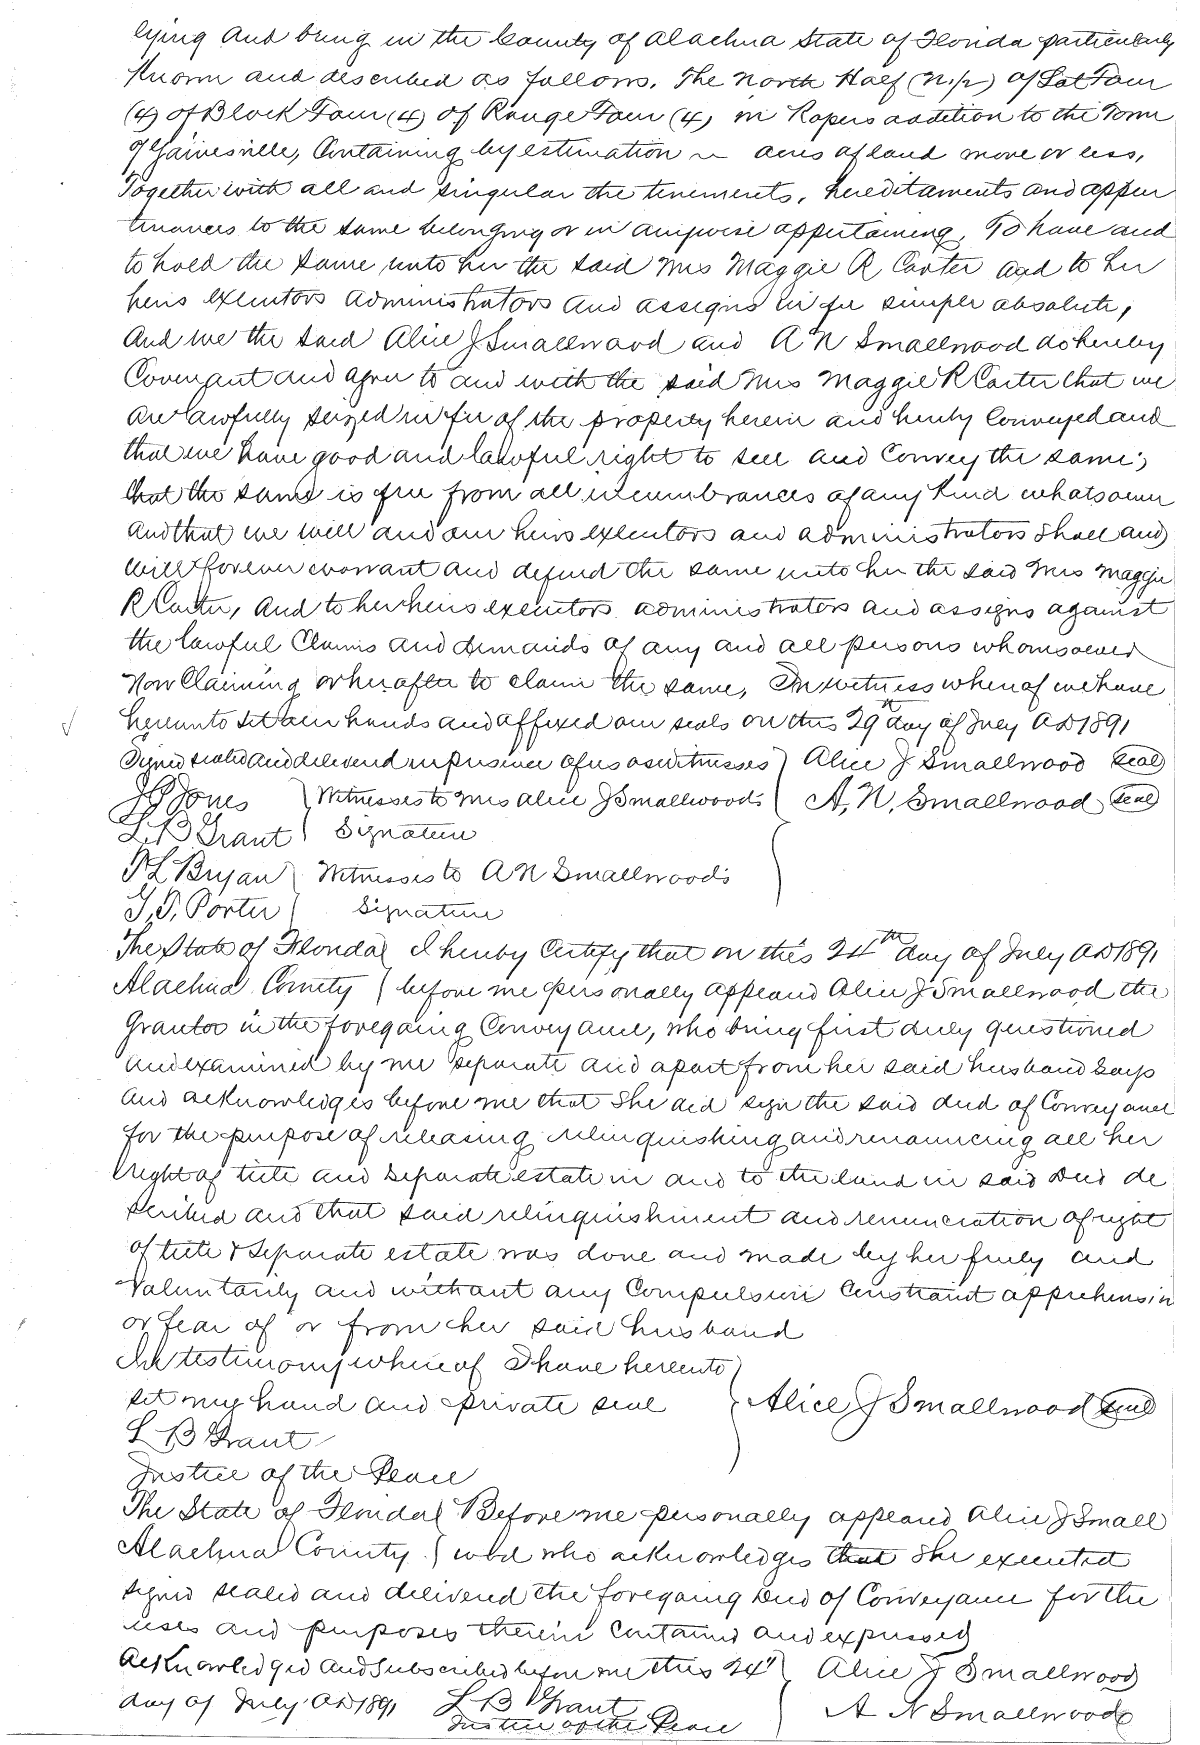 lying and being in the County of Alachua State of Florida particularly
Known and described as follows. The North Half (N.½) of Lot Four
(4) of Block Four (4) of Range Four (4) in Ropers addition to the Town
of Gainesville, Containing by estimation ~ acres of land more or less,
Together with all and singular the tenements, hereditaments and appur
tenances to the same belonging or in anywise appertaining, To have and
to hold the same unto her the said Mrs Maggie R Carter and to her
heirs executors administrators and assigns in fee simple absolute,
And we the said Alice J Smallwood and A N Smallwood do hereby
Covenant and agree to and with the said Mrs Maggie R Carter that we
are lawfully seized in fee of the property herein and hereby Conveyed and
that we have good and lawful right to sell and Convey the same;
that the same is free from all incumbrances of any Kind whatsoever
And that we will and our heirs executors and administrators shall and
will forever warrant and defend the same unto her the said Mrs Maggie
R Carter, And to her heirs executors administrators and assigns against
the lawful Claims and demands of any and all persons whomsoever
Now Claiming or hereafter to claim the same, In witness whereof we have
hereunto set our hands and affixed our seals on this 29th day of July AD 1891
Signed sealed and delivered in presence of us as witnesses Alice J Smallwood seal
J G Jones Witnesses to Mrs Alice J Smallwoods A, N, Smallwood seal
L. B Grant Signature
P L Bryan Witnesses to A N Smallwoods
T, P, Porter Signature
The State of Florida I hereby Certify that on this 24th day of July AD 1891
Alachua County before me personally appeared Alice J Smallwood the
Grantor in the foregoing Conveyance, who being first duly questioned
and examined by me separate and apart from her said husband says
and acknowledges before me that she did sign the said deed of Conveyance
for the purpose of releasing relinquishing and renouncing all her
right of title and separate estate in and to the land in said Deed de
scribed and that said relinquishment and renunciation of right
of title & separate estate was done and made by her freely and
Voluntarily and without any Compulsion Constraint apprehension
or fear of or from her said husband
In testimony whereof I have hereunto
set my hand and private seal Alice J Smallwood seal
L B Grant
Justice of the Peace
The State of Florida Before me personally appeared Alice J Small
Alachua County wood who acknowledges that she executed
signed sealed and delivered the foregoing Deed of Conveyance for the
uses and purposes therein Contained and expressed
Acknowledged and Subscribed before me this 24" Alice J Smallwood
day of July AD 1891 L B Grant A N Smallwood
Justice of the Peace